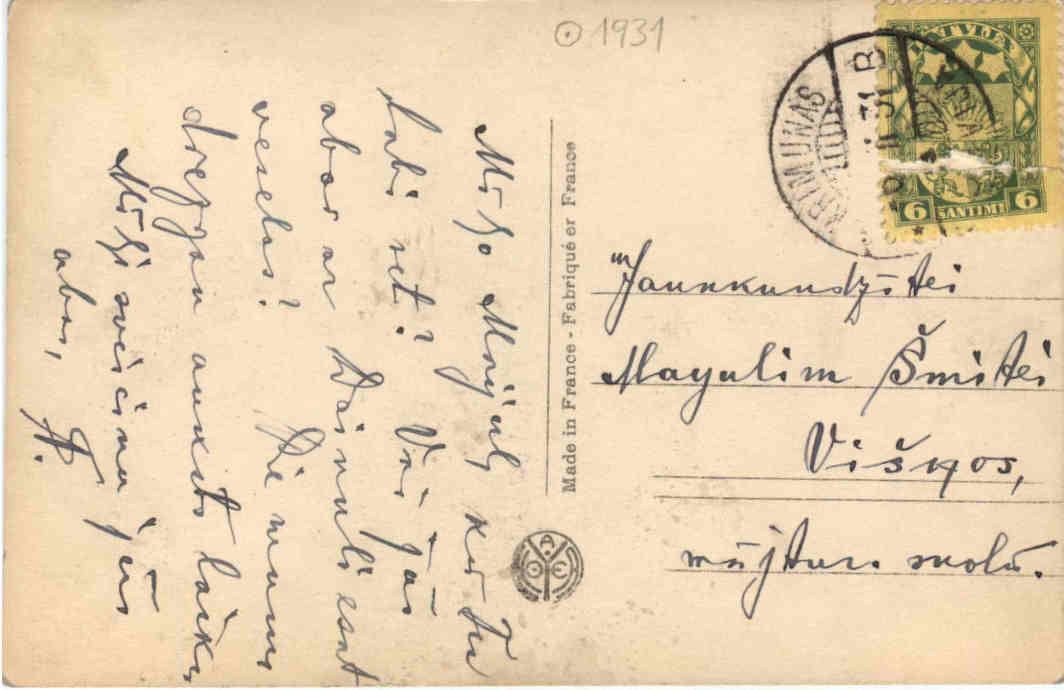 1931
LATVIJA
6 SANTIMI 6
KRIMUNAS
B
Mīļo Mayul, kā Tev
labi iet? Vai jūs
abas ar Dainuli esat
veselas? Pie mums
auksts laiks,
Mīļi sveicinu jūs
abas,
A.
Made in France - Fabriqué er France
Jaunkundzītei
Mayulim Šmitei
Višķos,
mājtur. skolā.